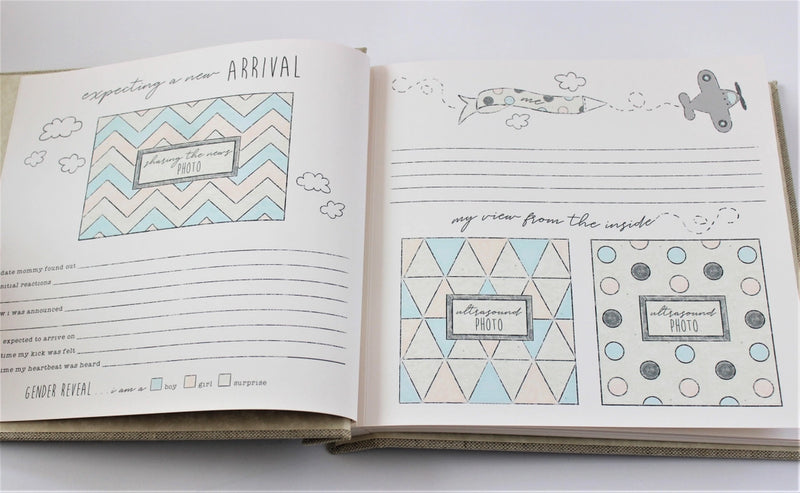 expecting a new ARRIVAL
sharing the news
PHOTO
date mommy found out
initial reactions
i was announced
expected to arrive on
time my kick was felt
time my heartbeat was heard
GENDER REVEAL... i am a boy girl surprise
me
my view from the inside
ultrasound
PHOTO
ultrasound
PHOTO